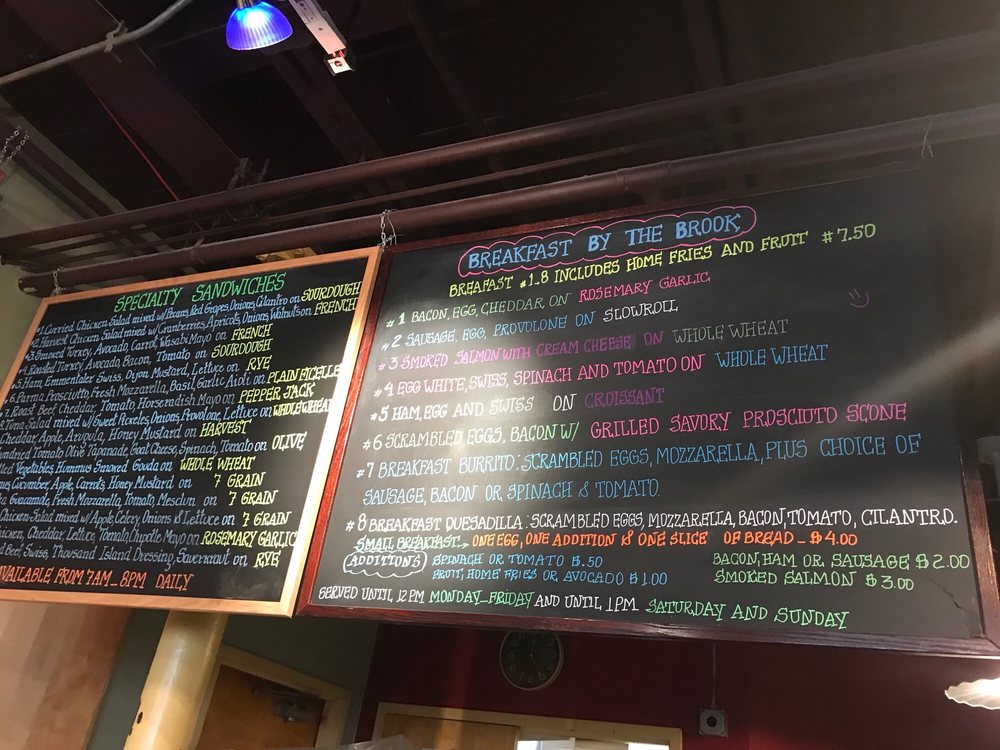 SPECIALTY SANDWICHES
#1. Curried Chicken Salad mixed w/ Pecans, Red Grapes, Onions, Cilantro on SOURDOUGH
#2. Harvest Chicken Salad mixed w/ Cranberries, Apricots, Onions, Walnuts on FRENCH
#3. Smoked Turkey, Avocado, Carrot, Wasabi Mayo on FRENCH
#4. Roasted Turkey, Avocado, Bacon, Tomato on SOURDOUGH
#5. Ham, Emmentaler Swiss, Dijon Mustard, Lettuce on RYE
6. Parma Prosciutto, Fresh Mozzarella, Basil, Garlic Aioli on PLAIN FICELLE
7. Roast Beef, Cheddar, Tomato, Horseradish Mayo on PEPPER JACK
Tuna Salad mixed w/ Sweet Pickles, Onions, Provolone, Lettuce on WHOLE WHEAT
Cheddar, Apple, Arugula, Honey Mustard on HARVEST
Tomato Olive Tapanade, Goat Cheese, Spinach, Tomato on OLIVE
Vegetables, Hummus Smoked Gouda on WHOLE WHEAT
Cucumber, Apple, Carrots, Honey Mustard on 7 GRAIN
Guacamole, Fresh Mozzarella, Tomato, Mesclun on 7 GRAIN
Chicken Salad mixed w/ Apple, Celery, Onions & Lettuce on 7 GRAIN
Cheddar, Lettuce, Tomato, Chipotle Mayo on ROSEMARY GARLIC
Beef, Swiss, Thousand Island Dressing, Sauerkraut on RYE
AVAILABLE FROM 7AM_8PM DAILY
BREAKFAST BY THE BROOK
BREAFAST #1.8 INCLUDES HOME FRIES AND FRUIT $7.50
#1 BACON, EGG, CHEDDAR ON ROSEMARY GARLIC
#2 SAUSAGE, EGG, PROVOLONE ON SLOWROLL
#3 SMOKED SALMON WITH CREAM CHEESE ON WHOLE WHEAT
#4 EGG WHITE, SWISS, SPINACH AND TOMATO ON WHOLE WHEAT
#5 HAM, EGG AND SWISS ON CROISSANT
#6 SCRAMBLED EGGS, BACON W/ GRILLED SAVORY PROSCIUTO SCONE
#7 BREAKFAST BURRITO: SCRAMBLED EGGS, MOZZARELLA, PLUS CHOICE OF
SAUSAGE, BACON OR SPINACH & TOMATO.
#8 BREAKFAST QUESADILLA: SCRAMBLED EGGS, MOZZARELLA, BACON, TOMATO, CILANTRO.
SMALL BREAKFAST: ONE EGG, ONE ADDITION & ONE SLICE OF BREAD _ $4.00
ADDITIONS SPINACH OR TOMATO $.50 BACON, HAM OR SAUSAGE $2.00
FRUIT, HOME FRIES OR AVOCADO $1.00 SMOKED SALMON $3.00
SERVED UNTIL 12 PM MONDAY_FRIDAY AND UNTIL 1PM SATURDAY AND SUNDAY